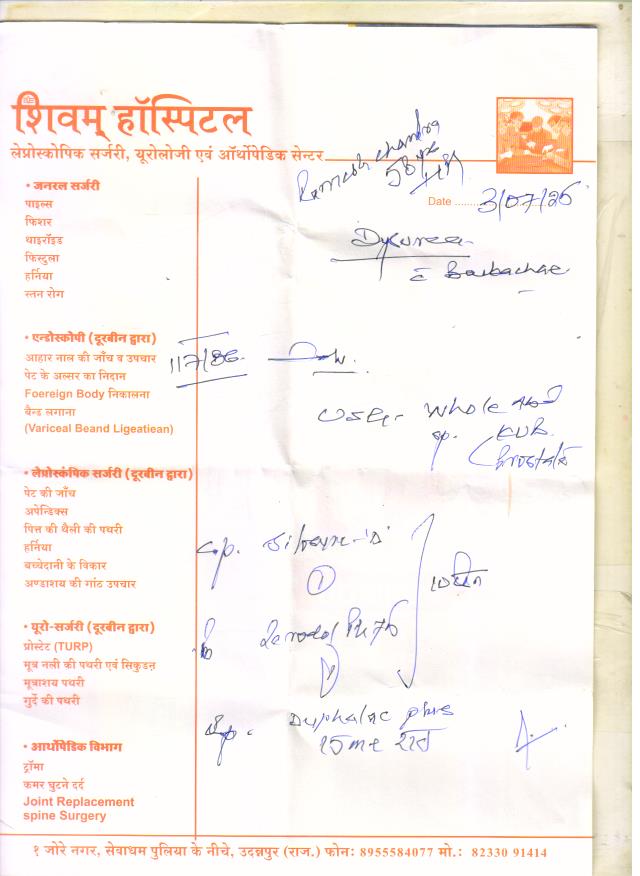 शिवम् हॉस्पिटल
लेप्रोस्कोपिक सर्जरी, यूरोलोजी एवं ऑर्थोपेडिक सेन्टर
Ramesh Chandra
58
Date 3/07/26
c Backache
• जनरल सर्जरी
पाइल्स
फिशर
थाइरॉइड
फिस्टुला
हर्निया
स्तन रोग
• एन्डोस्कोपी (दूरबीन द्वारा)
आहार नाल की जाँच व उपचार
पेट के अल्सर का निदान
Foereign Body निकालना
बैन्ड लगाना
(Variceal Beand Ligeatiean)
117/86
USG - Whole Abd
sp. KUB
Prostate
• लेप्रोस्कंपिक सर्जरी (दूरबीन द्वारा)
पेट की जाँच
अपेन्डिक्स
पित्त की थैली की पथरी
हर्निया
बच्चेदानी के विकार
अण्डाशय की गांठ उपचार
cap. 'D'
1
10 दिन
• यूरो-सर्जरी (दूरबीन द्वारा)
प्रोस्टेट (TURP)
मूत्र नली की पथरी एवं सिकुडऩ
मूत्राशय पथरी
गुर्दे की पथरी
1
Syp. Duphalac plus
15ml रात
• आर्थोपेडिक विभाग
ट्रॉमा
कमर घुटने दर्द
Joint Replacement
spine Surgery
१ जोरे नगर, सेवाधम पुलिया के नीचे, उदन्नपुर (राज.) फोन: 8955584077 मो.: 82330 91414